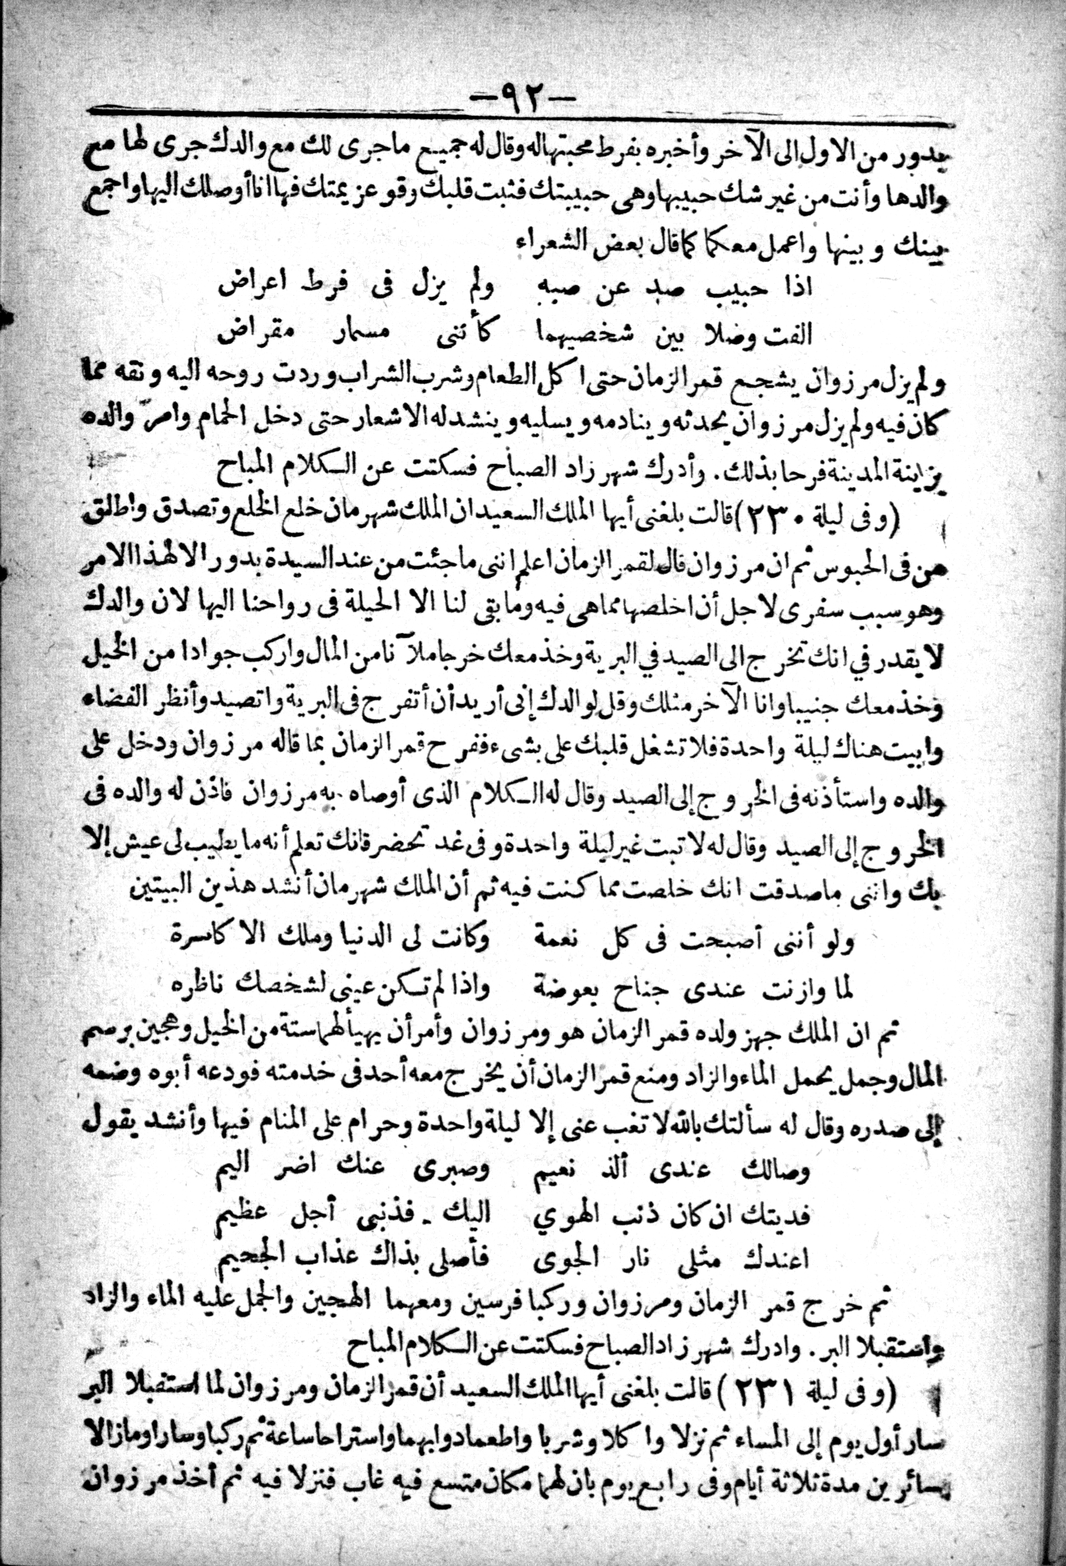 -٩٢-
بدور من الاول إلى الآخر وأخبره بفرط محبتها له وقال له جميع ماجرى لك مع والدك جرى لها مع
والدها وأنت من غير شك حبيبها وهى حبيبتك فثبت قلبك وقو عزيمتك فها انا أوصلك اليها واجمع
بينك وبينها واعمل معكما كما قال بعض الشعراء
اذا حبيب صد عن صبه ولم يزل فى فرط اعراض
الفت وصلا بين شخصيهما كأننى مسمار مقراض
ولم يزل مرزوان يشجع قمر الزمان حتى اكل الطعام وشرب الشراب وردت روحه اليه ونقه مما
كان فيه ولم يزل مرزوان يحدثه وينادمه ويسليه وينشد له الاشعار حتى دخل الحمام وامر والده
بزاينة المدينة فرحا بذلك. وأدرك شهر زاد الصباح فسكتت عن السكلام المباح
(وفى ليلة ٢٣٠) قالت بلغنى أيها الملك السعيد ان الملك شهرمان خلع الخلع وتصدق واطلق
من فى الحبوس ثم ان مرزوان قال لقمر الزمان اعلم اننى ماجئت من عند السيدة بدور الا لهذا الامر
وهو سبب سفرى لاجل أن اخلصها مما هى فيه وما بقى لنا الا الحيلة فى رواحنا اليها لان والدك
لا يقدر في انك تخرج الى الصيد في البرية وخذ معك خرجا ملآنا من المال واركب جوادا من الخيل
وخذ معك جنيبا وانا الآخر مثلك وقل لوالدك إنى أريد أن أتفرج فى البرية واتصيد وأنظر الفضاء
وابيت هناك ليلة واحدة فلا تشغل قلبك على بشىء ففرح قمر الزمان بما قاله مرزوان ودخل على
والده واستأذنه فى الخروج إلى الصيد وقال له السكلام الذى أوصاه به مرزوان فاذن له والده فى
الخروج إلى الصيد وقال له لا تبت غير ليلة واحدة وفى غد تحضر فانك تعلم أنه ما يطيب لى عيش إلا
بك واننى ماصدقت انك خلصت مما كنت فيه ثم أن الملك شهرمان أنشد هذين البيتين
ولو أننى أصبحت فى كل نعمة وكانت لى الدنيا وملك الاكاسرة
لما وازنت عندى جناح بعوضة واذا لم تسكن عينى لشخصك ناظره
ثم ان الملك جهز ولده قمر الزمان هو ومرزوان وأمر أن يهيأ لهما ستة من الخيل وهجين برسم
المال وجمل يحمل الماء والزاد ومنع قمر الزمان أن يخرج معه أحد فى خدمته فودعه أبوه وضمه
إلى صدره وقال له سألتك بالله لا تغب عنى إلا ليلة واحدة وحرام على المنام فيها وأنشد يقول
وصالك عندى ألذ نعيم وصبرى عنك اضر اليم
فديتك ان كان ذنب الهوي اليك . فذنبى أجل عظيم
اعندك مثلى نار الجوى فأصلى بذاك عذاب الجحيم
ثم خرج قمر الزمان ومرزوان وركبا فرسين ومعهما الهجين والجمل عليه الماء والزاد
واستقبلا البر. وادرك شهر زاد الصباح فسكتت عن السكلام المباح
(وفى ليلة ٢٣١) قالت بلغنى أيها الملك السعيد أن قمر الزمان ومرزوان لما استقبلا البر
سار أول يوم إلى المساء ثم نزلا واكلا وشربا واطعما دوابهما واستراحا ساعة ثم ركبا وسارا ومازالا
سائرين مدة ثلاثة أيام وفى رابع يوم بان لهما مكان متسع فيه غاب فنزلا فيه ثم أخذ مرزوان